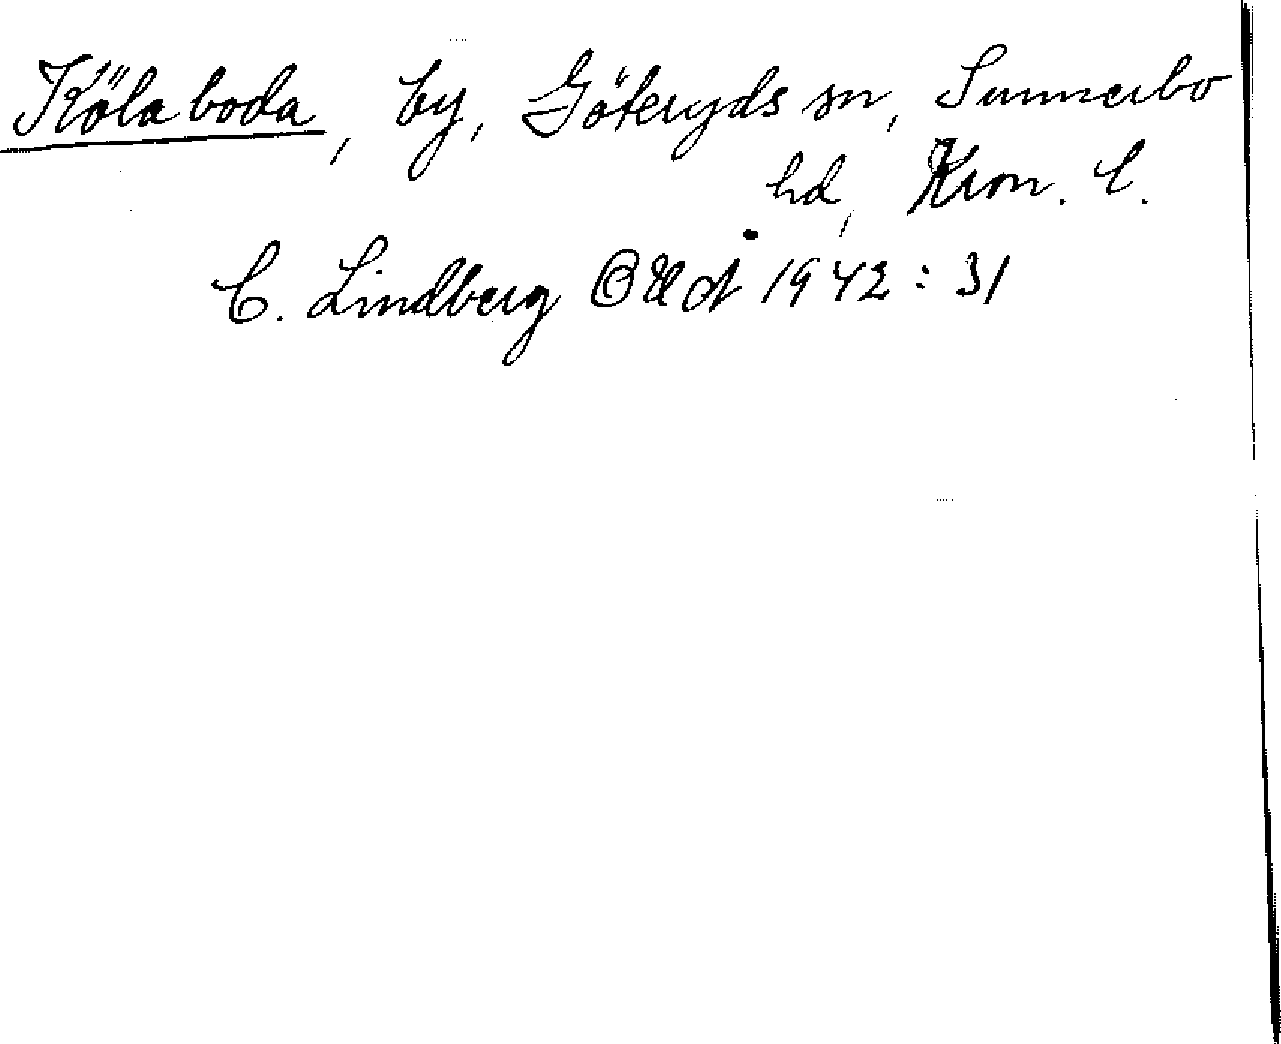 Kölaboda, by, Göteryds sn, Sunnerbo
hd, Kron. l.
C. Lindberg OUÅ 1942: 31